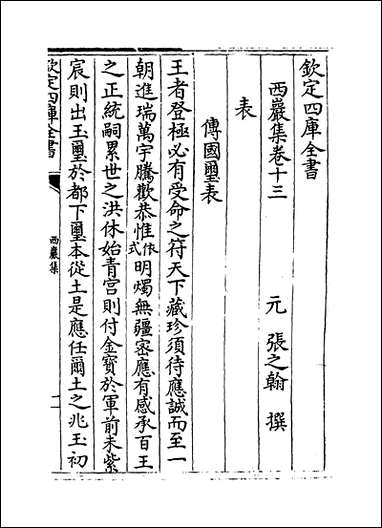 欽定四庫全書
西巖集卷十三
元 張之翰 撰
表
傳國璽表
王者登極必有受命之符天下藏珍須待應誠而至一
朝進瑞萬宇騰歡恭惟依式明燭無疆密應有感承百王
之正統嗣累世之洪休始青宮則付金寶於軍前未紫
宸則出玉璽於都下璽本從土是應任爾土之兆玉初
欽定四庫全書
西巖集
一